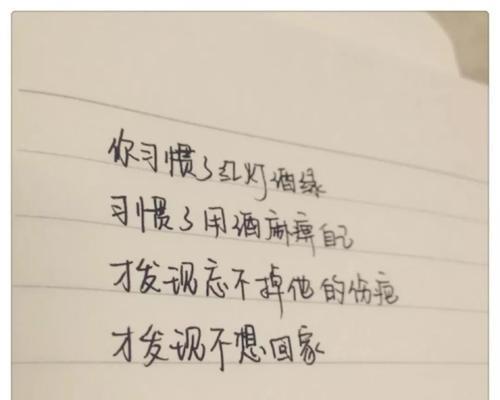 你习惯了红灯酒绿
习惯了用酒麻痹自己
才发现忘不掉他的伤疤
才发现不想回家